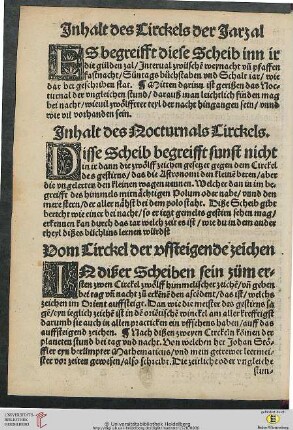 Inhalt des Circkels der Jarzal
ES begreifft diese Scheib inn ir
die gülden zal / Interual zwischē weynacht vn̄ pfaffen
fastnacht / Sūntags būchstaben vnd Schalt iar / wie
dar bey geschriben stat. ¶ Mitten darinn ist gerissen das Noc
turnal der vngleichen stund / darauß man leichtlich finden mag
bey nacht / wieuil zwölffteer teyl der nacht hingangen sein / vnnd
wie vil vorhanden sein.
Inhalt des Nocturnals Circkels.
Disse Scheib begreifft sunst nicht
in ir dann die zwölff zeichen gesetzt gegen dem Circkel
des gestirns / das die Astronomi den kleinē beren / aber
die vngelerten den kleinen wagen nennen. Welcher dan in im be
greifft des himmels mitnächtigen Polum oder wirbel vnnd den
mere stern / der aller nähst bei dem polo staht. Diße Scheib gibt
bericht wie einer bei nacht / so er yetzt genants gestirn sehen mag /
erkennen kan durch das iar welch zeit es ist / wie du in dem ander
theyl dißes büchlins lernen würdst
Vom Circkel der vffsteigende zeichen
IN dißer Scheiben sein zūm er-
sten zwen Circkel zwölff himmelischer zeichē / vn̄ geben
bei tag vn̄ nacht zū erkenē den ascēdent / das ist / welchs
zeichen im Orient auffsteigt. Dan wie die meister des gestirns sa
gē / eyn ieglich zeichē ist in dē oriētischē winckel am aller krefftigst
darumb sie auch in allen practicken ein vffsehens haben / auff das
auffsteigend zeichen. ¶ Nach dißen zwoyen Circkeln könnē der
planeten stund bei tag vnd nacht. Von welchen her Johan Stöf
fler eyn berūmpter Mathematicus / vnd mein getrewer leermei-
ster vor zeiten gewesen / also schreibt. Die zeitliche oder vngleiche
stun-
UNIVERSITÄTS-
BIBLIOTHEK
HEIDELBERG
© Universitätsbibliothek Heidelberg